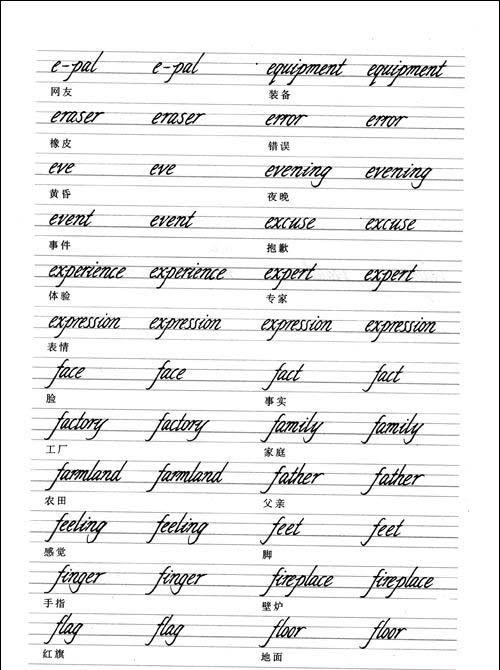 e-pal e-pal equipment equipment
网友 装备
eraser eraser error error
橡皮 错误
eve eve evening evening
黄昏 夜晚
event event excuse excuse
事件 抱歉
experience experience expert expert
体验 专家
expression expression expression expression
表情
face face fact fact
脸 事实
factory factory family family
工厂 家庭
farmland farmland father father
农田 父亲
feeling feeling feet feet
感觉 脚
finger finger fireplace fireplace
手指 壁炉
flag flag floor floor
红旗 地面